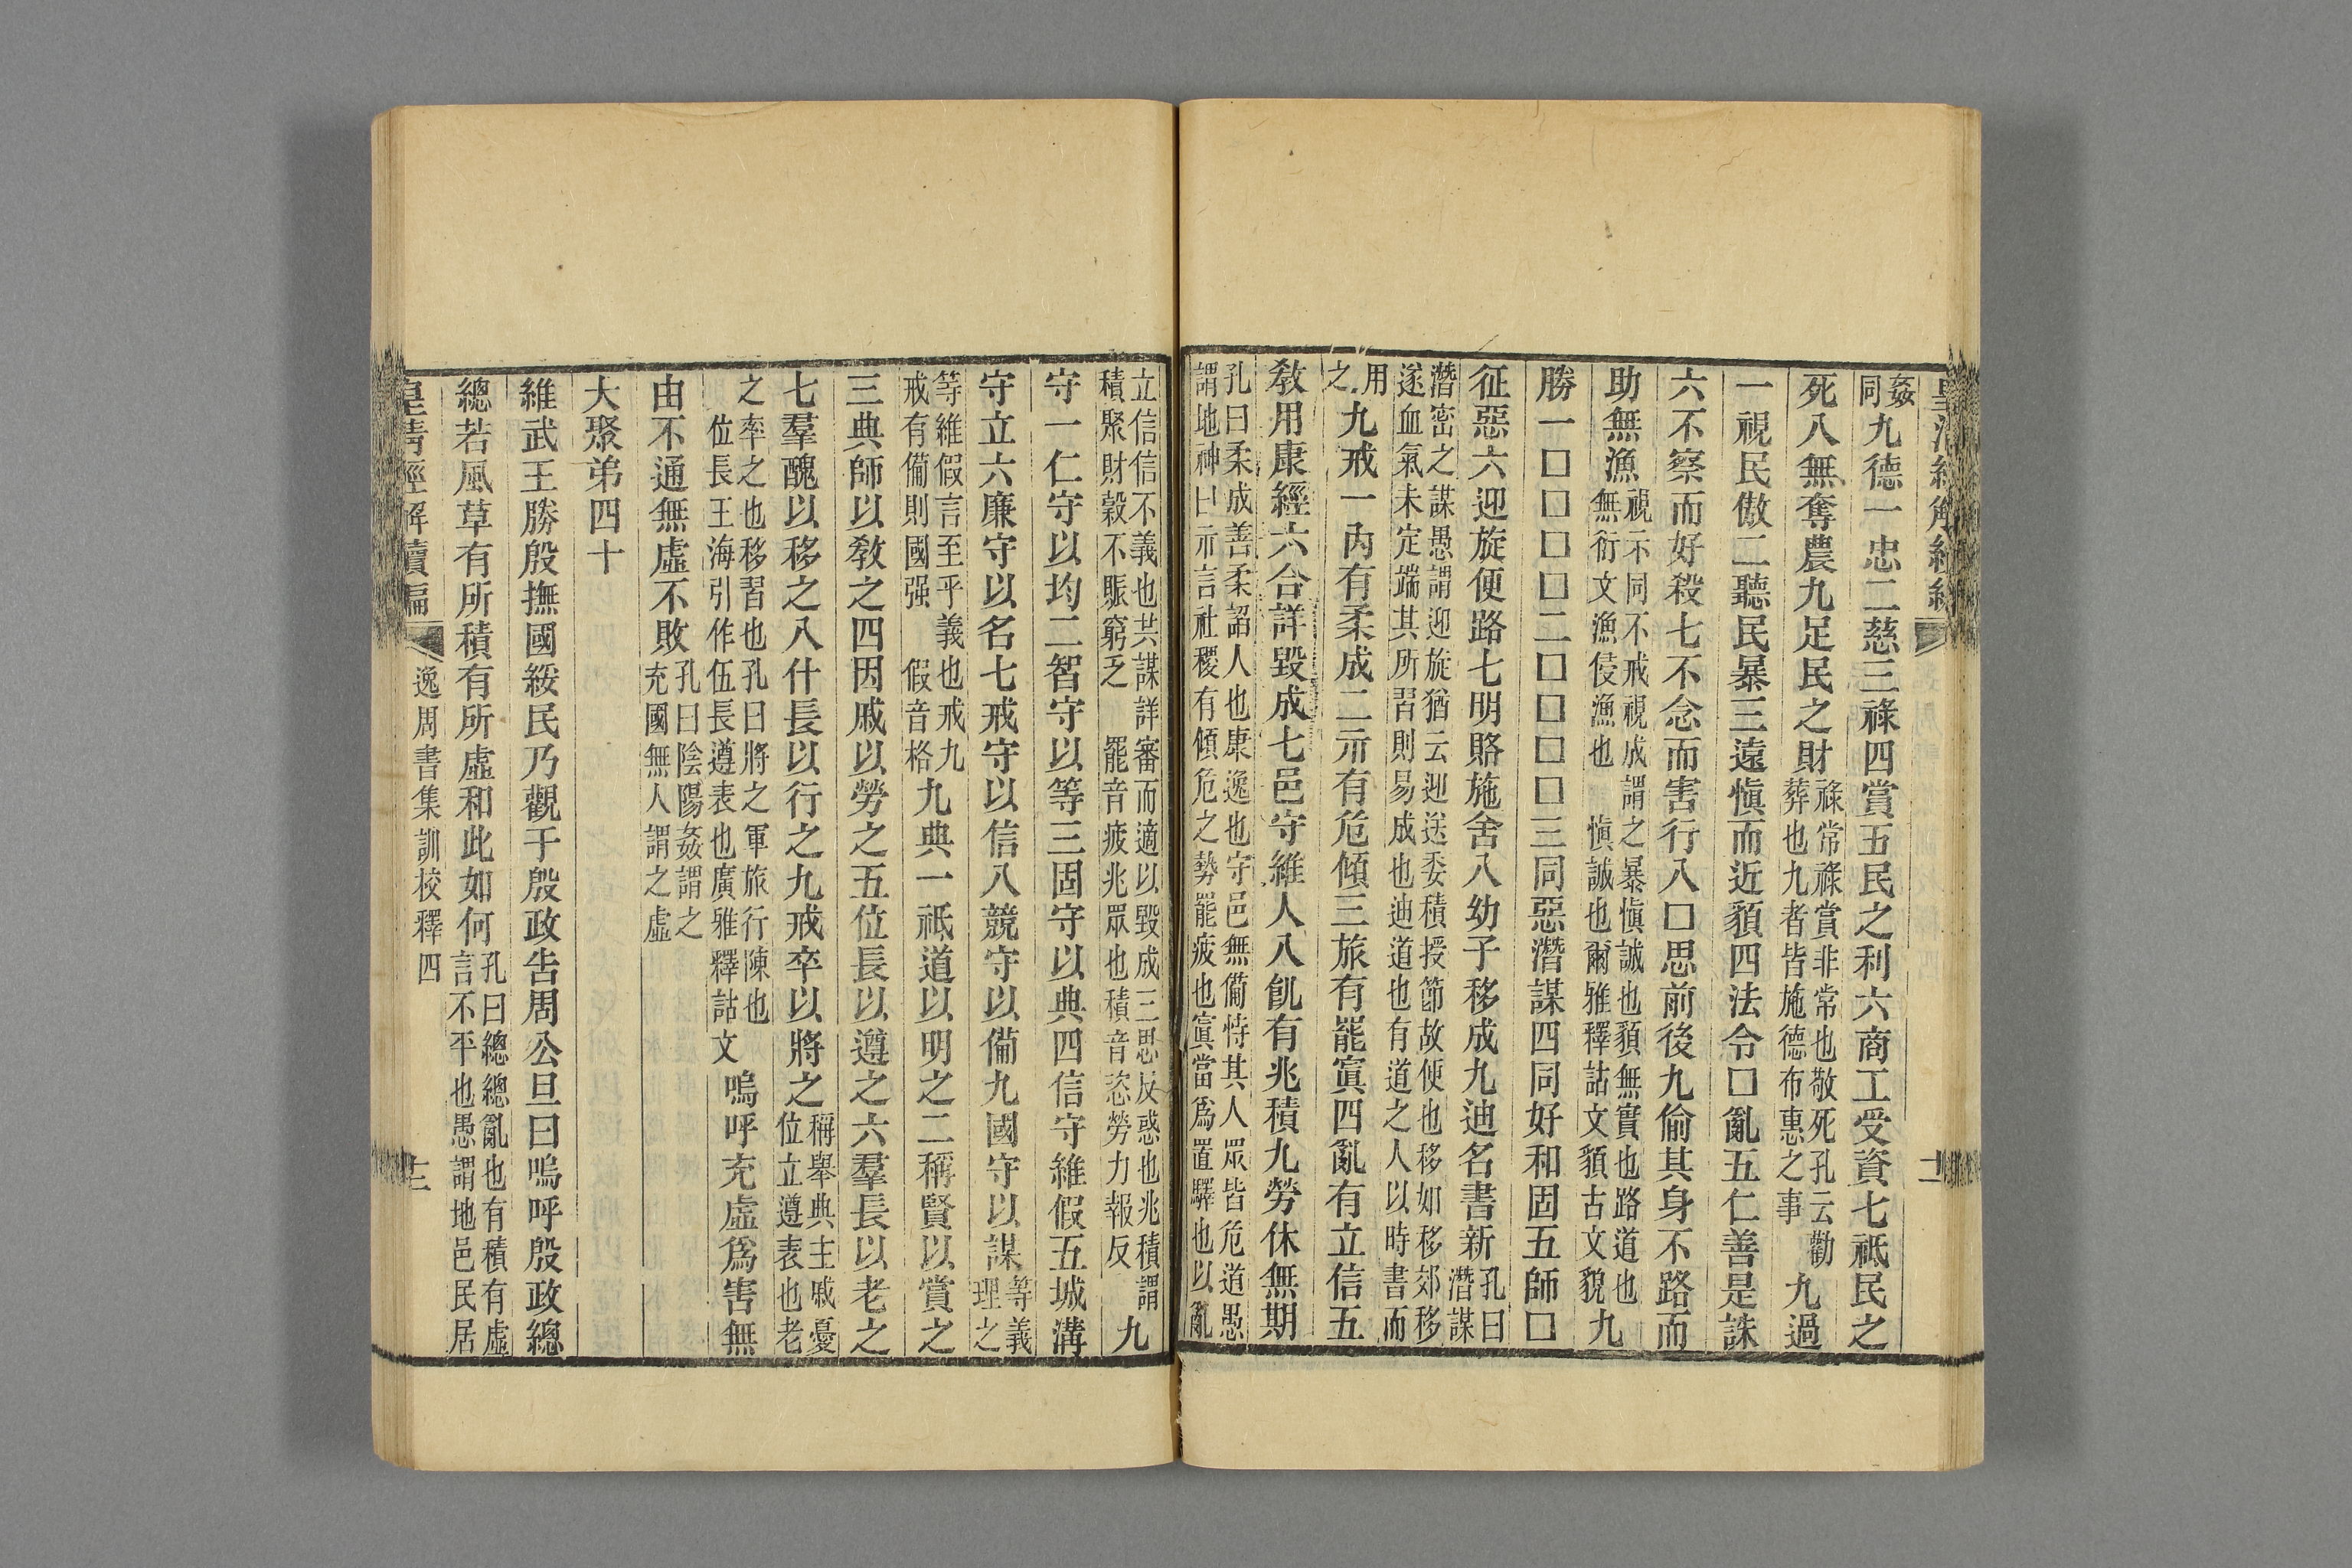 姦同九德一忠二慈三祿四賞五民之利六商工受資七祗民之
死八無奪農九足民之財祿常祿賞非常也敬死孔云勸葬也九者皆施德布惠之事九過
一視民傲二聽民暴三遠愼而近䫉四法令□亂五仁善是誅
六不察而好殺七不念而害行八□思前後九偷其身不路而
助無漁視示同不戒視成謂之暴愼誠也䫉無實也路道也無衍文漁侵漁也　愼誠也爾雅釋詁文䫉古文貌九
勝一□□□□二□□□□三同惡潛謀四同好和固五師□
征惡六迎旋便路七明賂施舍八幼子移成九迪名書新孔曰潛謀
潛密之謀愚謂迎旋猶云迎送委積授節故便也移如移郊移遂血氣未定端其所習則易成也迪道也有道之人以時書而
用之九戒一內有柔成二示有危傾三旅有罷寘四亂有立信五
敎用康經六合詳毀成七邑守維人八飢有兆積九勞休無期
孔曰柔成善柔詔人也康逸也守邑無備恃其人眾皆危道愚謂地神曰示言社稷有傾危之勢罷疲也寘當爲置驛也以亂
立信信不義也共謀詳審而適以毀成三思反惑也兆積謂積聚財穀不賑窮乏　罷音疲兆眾也積音恣勞力報反九
守一仁守以均二智守以等三固守以典四信守維假五城溝
守立六廉守以名七戒守以信八競守以備九國守以謀等義理之
等維假言至乎義也戒九戒有備則國强　假音格九典一祗道以明之二稱賢以賞之
三典師以敎之四因戚以勞之五位長以遵之六羣長以老之
七羣醜以移之八什長以行之九戒卒以將之稱舉典主戚憂位立遵表也老
之率之也移習也孔曰將之軍旅行陳也　位長王海引作伍長遵表也廣雅釋詁文嗚呼充虛爲害無
由不通無虛不敗孔曰陰陽姦謂之充國無人謂之虛
大聚弟四十
維武王勝殷撫國綏民乃觀于殷政告周公旦曰嗚呼殷政總
總若風草有所積有所虛和此如何孔曰總總亂也有積有虛言不平也愚謂地邑民居
皇淸經解續編　逸周書集訓校釋四　十二